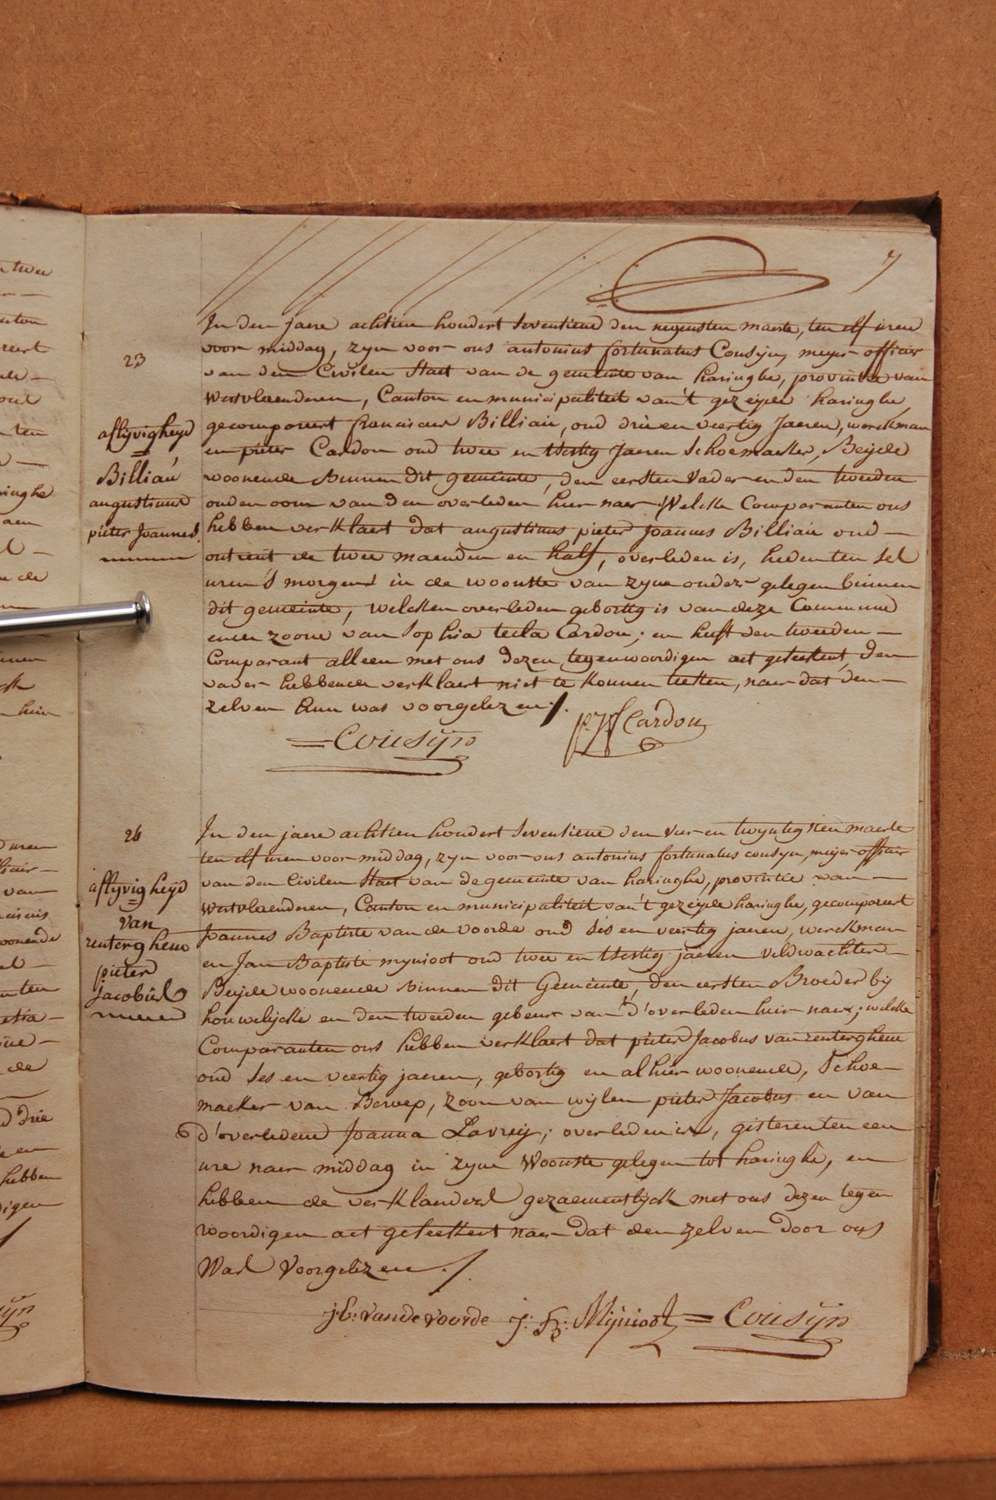 7
23
afflyvigheyd
Billiau
augustinus
pieter Joannes.
In den jaere achtien hondert seventiene den negensten maerte, ten elf uren
voor middag, zyn voor ons antonius fortunatus Cousyn, meyer officier
van den Civilen Staet van de gemeente van haringhe, provintie van
westvlaenderen, Canton en municipaliteit van't gezeyde haringhe,
gecompareert franciscus Billiau, oud drie en veertig Jaeren, werckman
en pieter Cardon oud twee en tsestig Jaeren Schoemaeker, Beyde
woonende binnen dit gemeente, den eersten vader en den tweeden
ouden oom van den overleden hier naer. Welcke Comparanten ons
hebben verklaert dat augustinus pieter Joannes Billiau oud
ontrent de twee maenden en half, overleden is, heden ten ses
uren 's morgens in de woonste van zyne ouders gelegen binnen
dit gemeente, welcken overleden gebortig is van deze Commune
eenen zoone van Sophia tecla Cardon; en heeft den tweeden
Comparant alleen met ons dezen tegenwoordigen act geteekent, den
vader hebbende verklaert niet te konnen teeken, naer dat den
zelven hun was voorgelezen ./.
Cousyn
Cardon
26
afflyvigheyd
van
renterghem
pieter
jacobus
In den jaere achtien hondert seventiene den vier en twyntigsten maerte
ten elf uren voor middag, zyn voor ons antonius fortunatus cousyn, meyer officier
van den Civilen Staet van de gemeente van haringhe, provintie van
westvlaenderen, Canton en municipaliteit van't gezeyde haringhe, gecompareert
Joannes Baptiste van de voorde oud ses en veertig jaeren, werckman
en Jan Baptiste mynioot oud twee en tsestig jaeren veldwachter
Beyde woonende binnen dit Gemeente, den eersten Broeder by
houwelyck en den tweeden gebeur van d'overleden hier naer; welcke
Comparanten ons hebben verklaert dat pieter Jacobus van renterghem
oud ses en veertig jaeren, gebortig en alhier woonende, Schoe-
maeker van Beroep, zoon van wylen pieter Jacobus en van
d'overledene Joanna Lavrey; overleden is, gisteren ten een
ure naer middag in zyne Woonste gelegen tot haringhe, en
hebben de verklaeders gezaementlyck met ons dezen tegen
woordigen act geteekent naer dat den zelven door ons
Was Voorgelezen ./.
j.b: vande voorde J: B: Mynioot = Cousyn